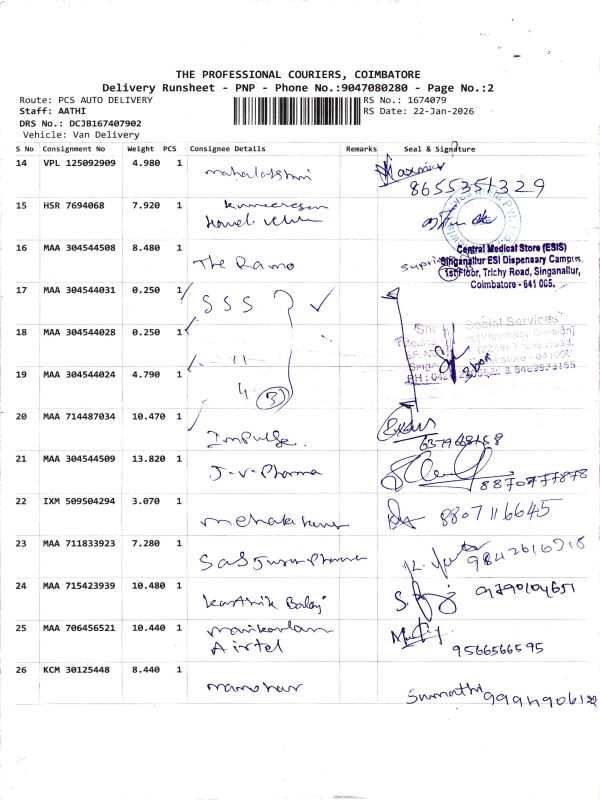 THE PROFESSIONAL COURIERS, COIMBATORE
Delivery Runsheet - PNP - Phone No.:9047080280 - Page No.:2
Route: PCS AUTO DELIVERY
Staff: AATHI
DRS No.: DCJB167407902
Vehicle: Van Delivery
RS No.: 1674079
RS Date: 22-Jan-2026
S No Consignment No Weight PCS Consignee Details Remarks Seal & Signature
14 VPL 125092909 4.980 1 mahalakshmi
8655351329
15 HSR 7694068 7.920 1 Kumaresan
16 MAA 304544508 8.480 1 The Ramo
Central Medical Store (ESIS)
Singanallur ESI Dispensary Campus.
1st Floor, Trichy Road, Singanallur,
Coimbatore - 641 005.
17 MAA 304544031 0.250 1 SSS
18 MAA 304544028 0.250 1 - 11 -
Social Services
19 MAA 304544024 4.790 1 4 (3)
20 MAA 714487034 10.470 1 Impulse.
21 MAA 304544509 13.820 1 J.V. Pharma
8870777878
22 IXM 509504294 3.070 1
8807116645
23 MAA 711833923 7.280 1
24 MAA 715423939 10.480 1 Karthik Balaji
25 MAA 706456521 10.440 1
Airtel
9566566595
26 KCM 30125448 8.440 1 manohar
Sumathi